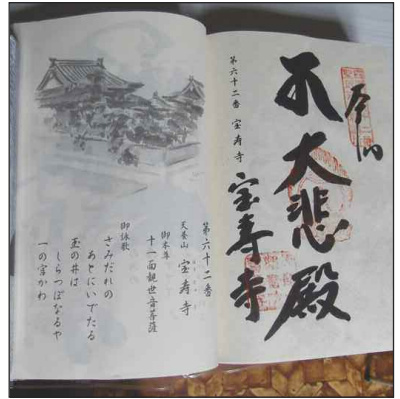 奉納
大悲殿
宝寿寺
第六十二番 宝寿寺
第六十二番
天養山 宝寿寺
御本尊
十一面観世音菩薩
御詠歌
さみだれの
あとにいでたる
玉の井は
しらつぼなるや
一の宮かわ